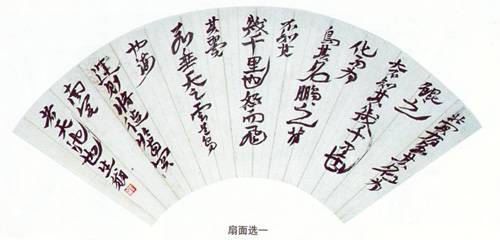 北冥有魚其名為
鯤之
大不知其幾千里也
化而為
鳥其名鵬之背
不知其
幾千里也怒而飛
其翼
若垂天之雲是鳥
也海
運則將徙於南冥
南冥
者天池也
扇面选一